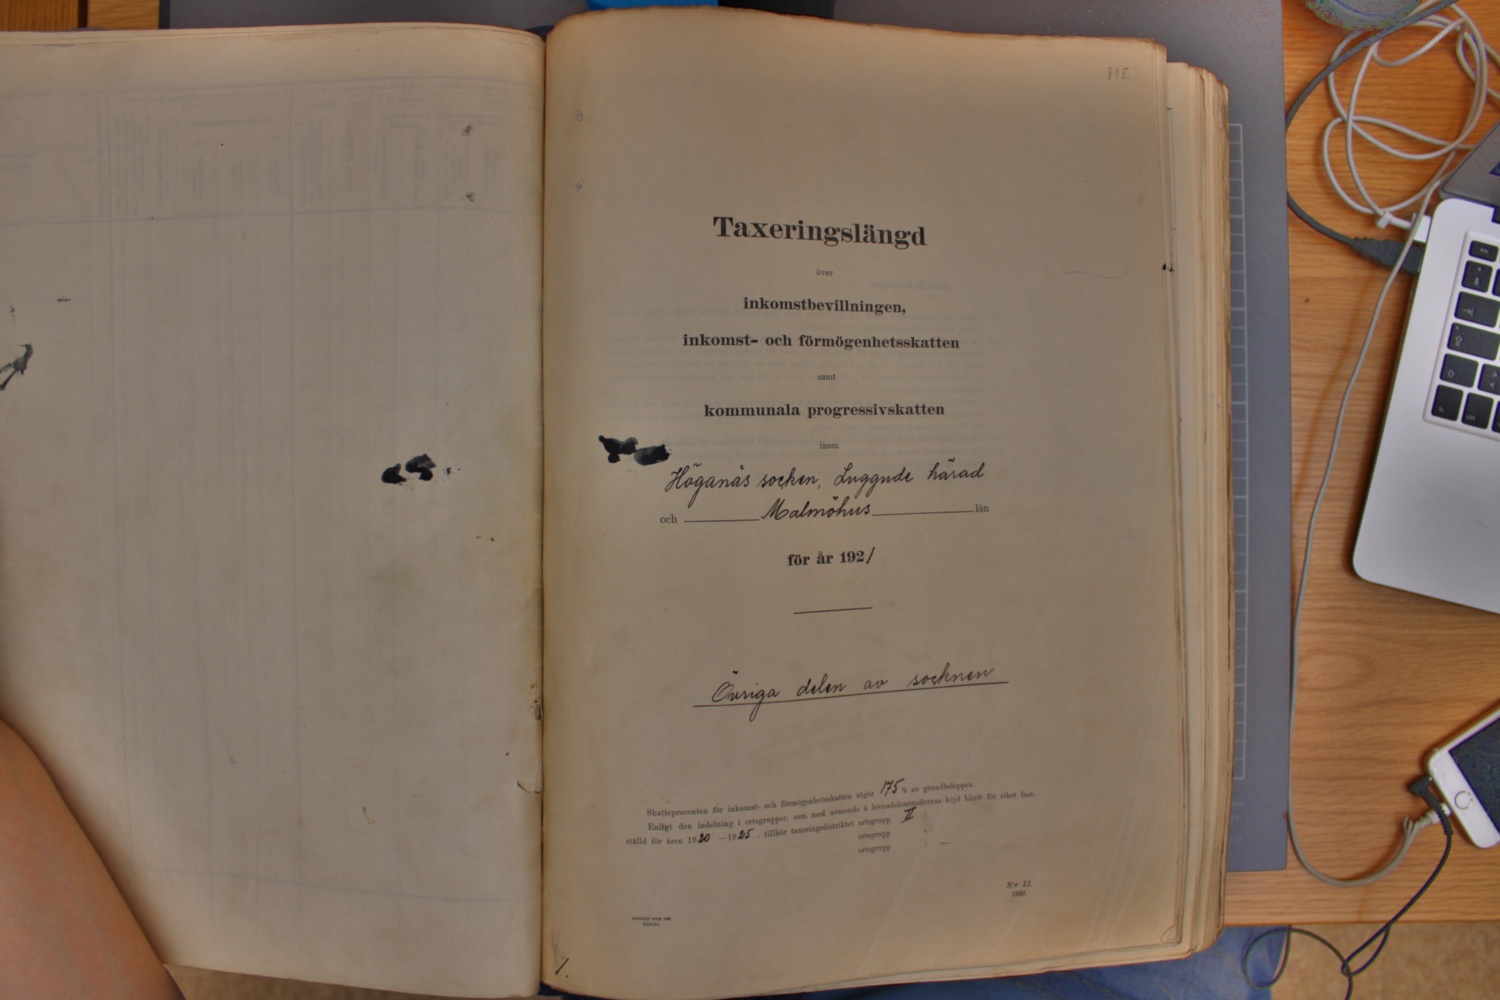 895.
Taxeringslängd
över
inkomstbevillningen,
inkomst- och förmögenhetsskatten
samt
kommunala progressivskatten
inom
Höganäs socken, Luggude härad
och Malmöhus län
för år 1921
Övriga delen av socknen
Skatteprocenten för inkomst- och förmögenhetsskatten utgör 175 % av grundbeloppen.
Enligt den indelning i ortsgrupper, som med avseende å levnadskostnadernas höjd blivit för riket fast-
ställd för åren 1920—1925, tillhör taxeringsdistriktet ortsgrupp II
ortsgrupp
ortsgrupp
Nr 12.
1920.
1.